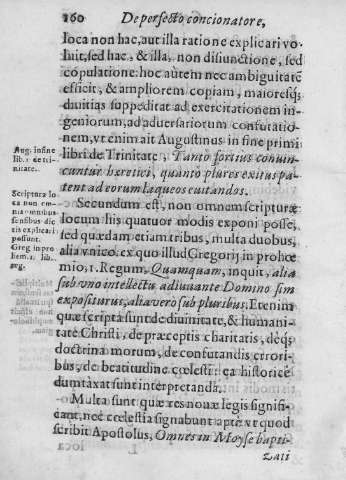 160 De perfecto concionatore,
loca non hac, aut illa ratione explicari vo-
luit, sed hac, & illa, non disiunctione, sed
copulatione: hoc autem nec ambiguitatẽ
efficit, & ampliorem copiam, maioresq;
diuitias suppeditat ad exercitationem in-
geniorum, ad aduersariorum confutatio-
nem, vt enim ait Augustinus in fine primi
libri de Trinitate, Tanto fortius conuin-
cuntur hæretici, quanto plures exitus pa-
tent ad eorum laqueos euitandos.
Aug. infine
lib. 1. de tri-
nitate.
Secundum est, non omnem scripturæ
locum his quatuor modis exponi posse,
sed quædam etiam tribus, multa duobus,
alia vnico. ex quo illud Gregorij in prohœ
mio, 1. Regum, Quamquam, inquit, alia
sub vno intellectu adiuuante Domino sim
expositurus, alia vero sub pluribus. Etenim
quæ scripta sunt de diuinitate, & humani-
tate Christi, de præceptis charitatis, deq;
doctrina morum, de confutandis errori-
bus, de beatitudine cœlesti: ea historicè
dumtaxat sunt interpretanda.
Scripturæ lo
ca non om-
nia omnibus
sensibus dic
tis explicari
possunt.
Greg. in pro
hem. 1. lib.
reg.
Multa sunt quæ res nouæ legis signifi-
cant, nec cœlestia signabunt apte: vt quod
scribit Apostolus, Omnes in Moyse bapti-
zati